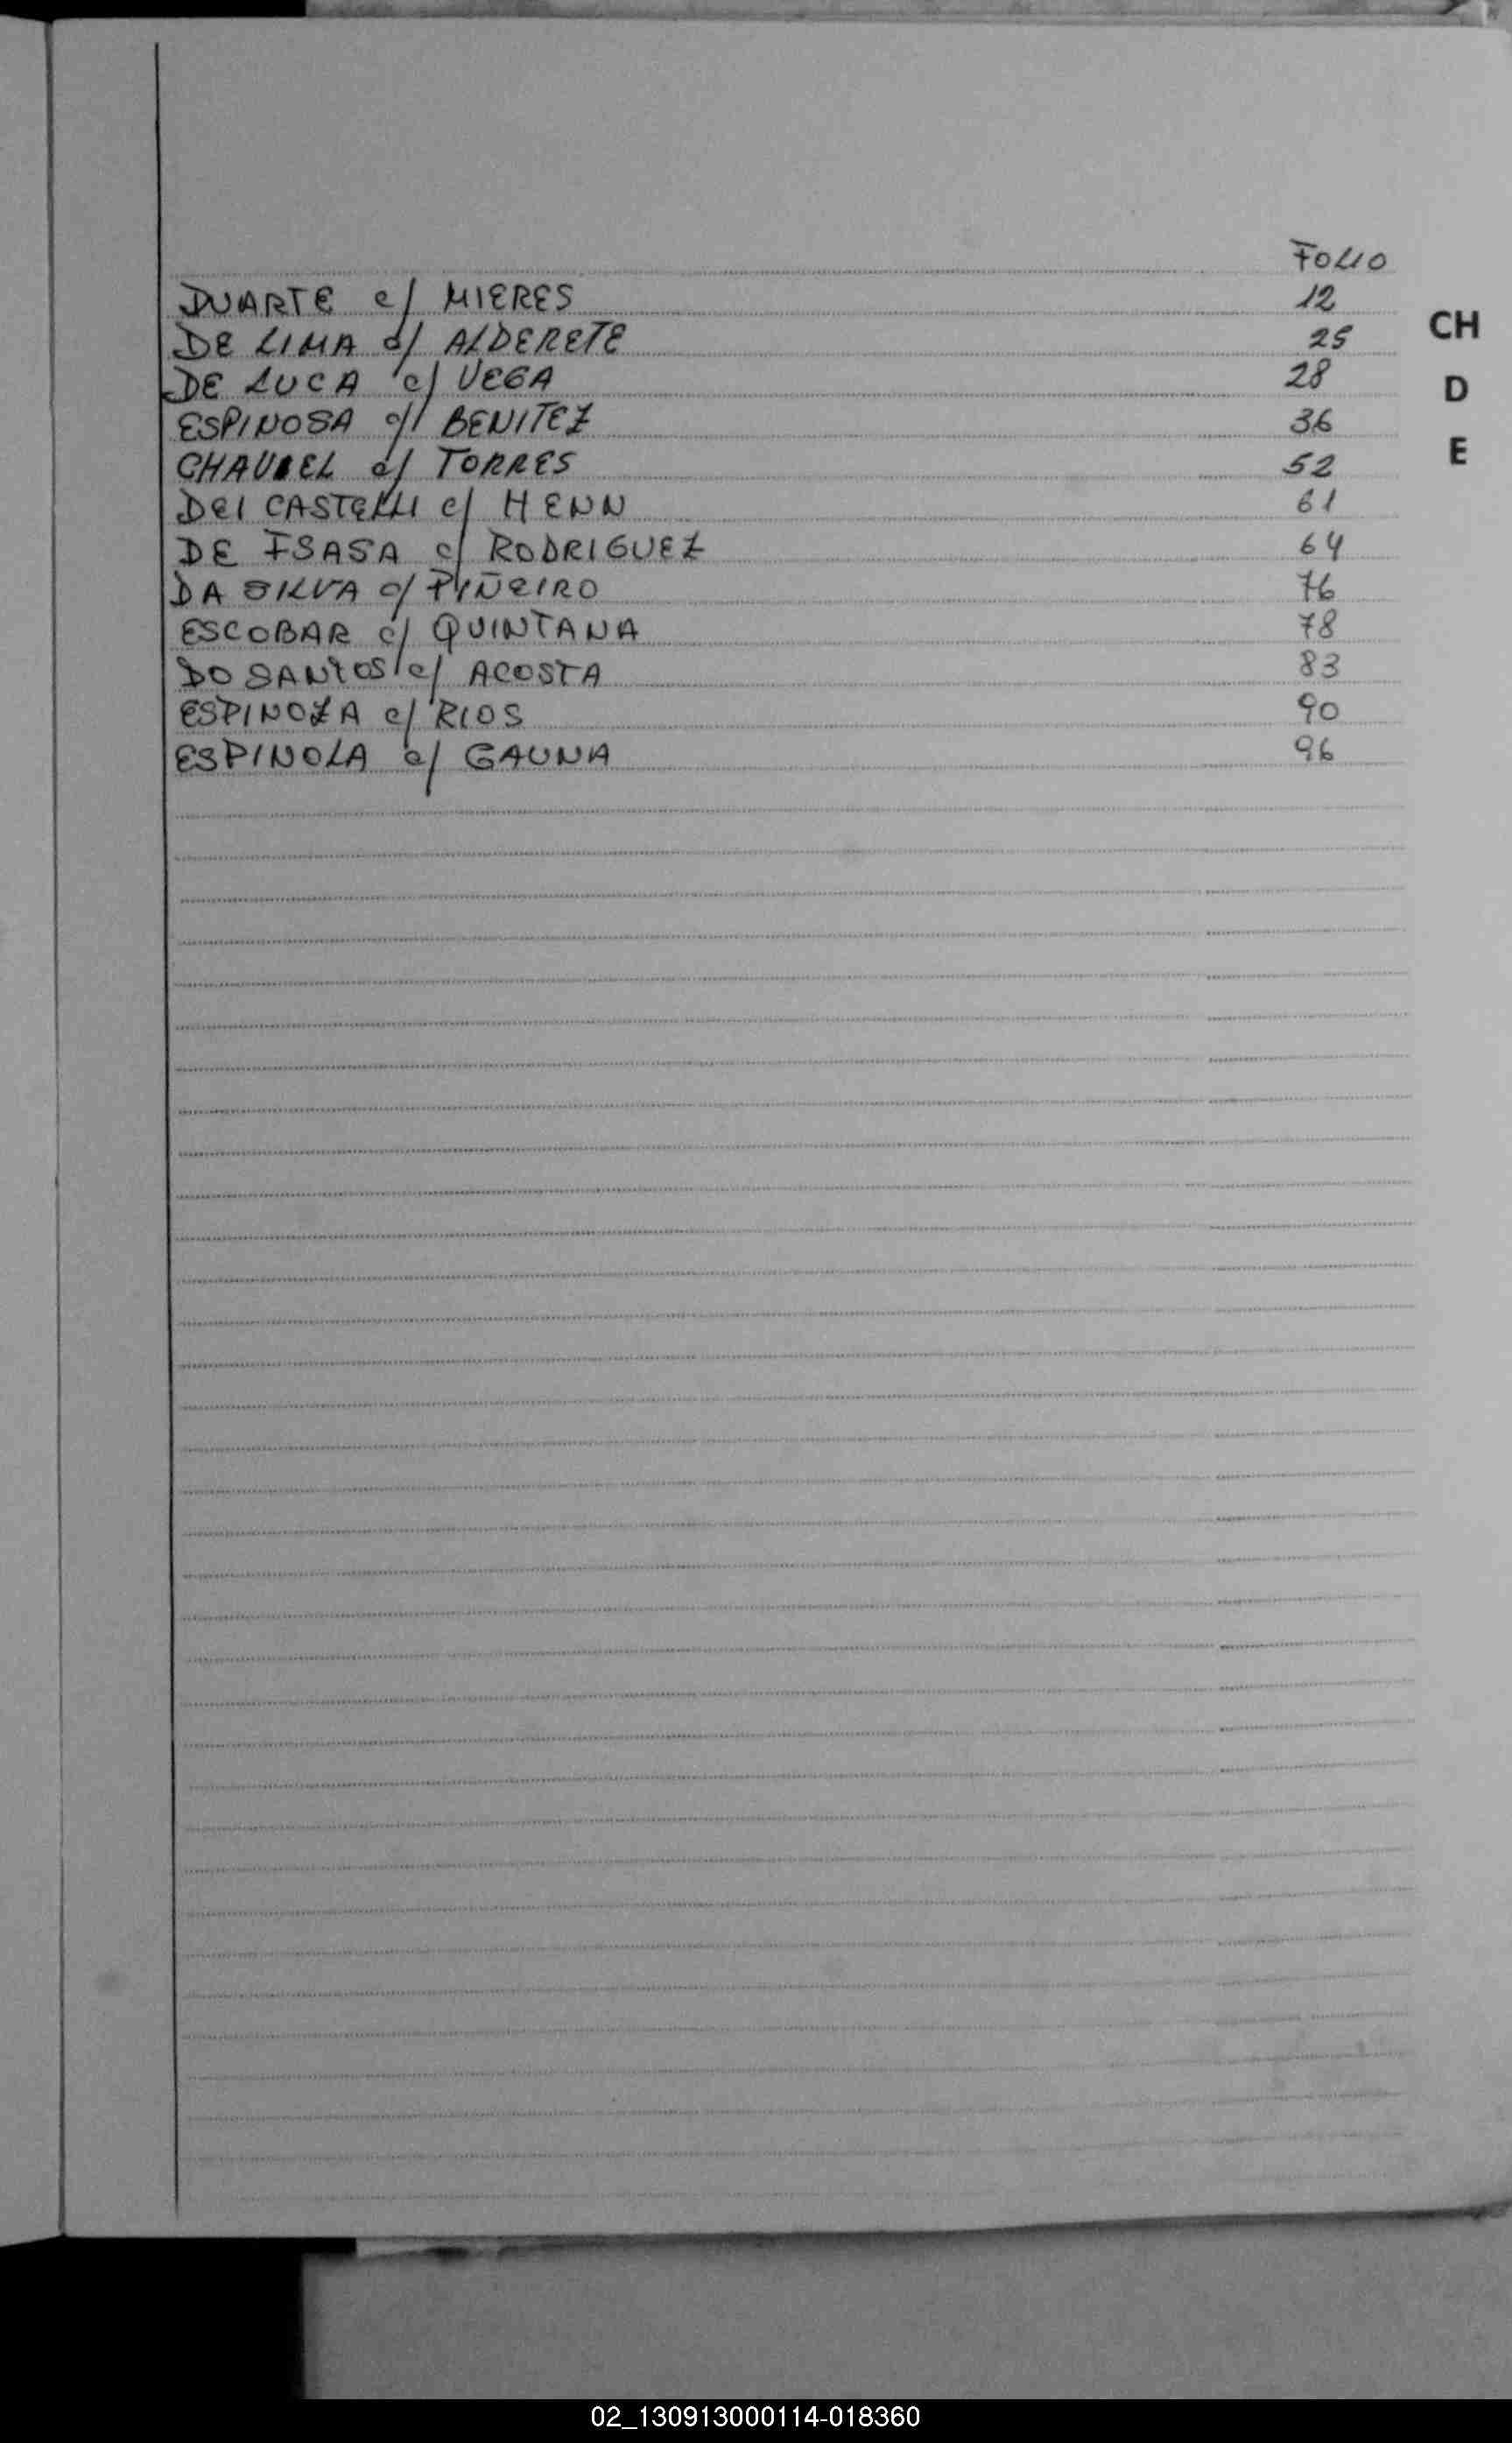 FOLIO
DUARTE c/ MIERES 12
CH
DE LIMA c/ ALDERETE 25
DE LUCA c/ VEGA 28
D
ESPINOSA c/ BENITEZ 36
E
c/ TORRES 52
DEI CASTELLI c/ HENN 61
DE ISASA c/ RODRIGUEZ 64
DA SILVA c/ PIÑEIRO 76
ESCOBAR c/ QUINTANA 78
DO SANTOS c/ ACOSTA 83
ESPINOZA c/ RIOS 90
ESPINOLA c/ GAUNA 96
02_130913000114-018360